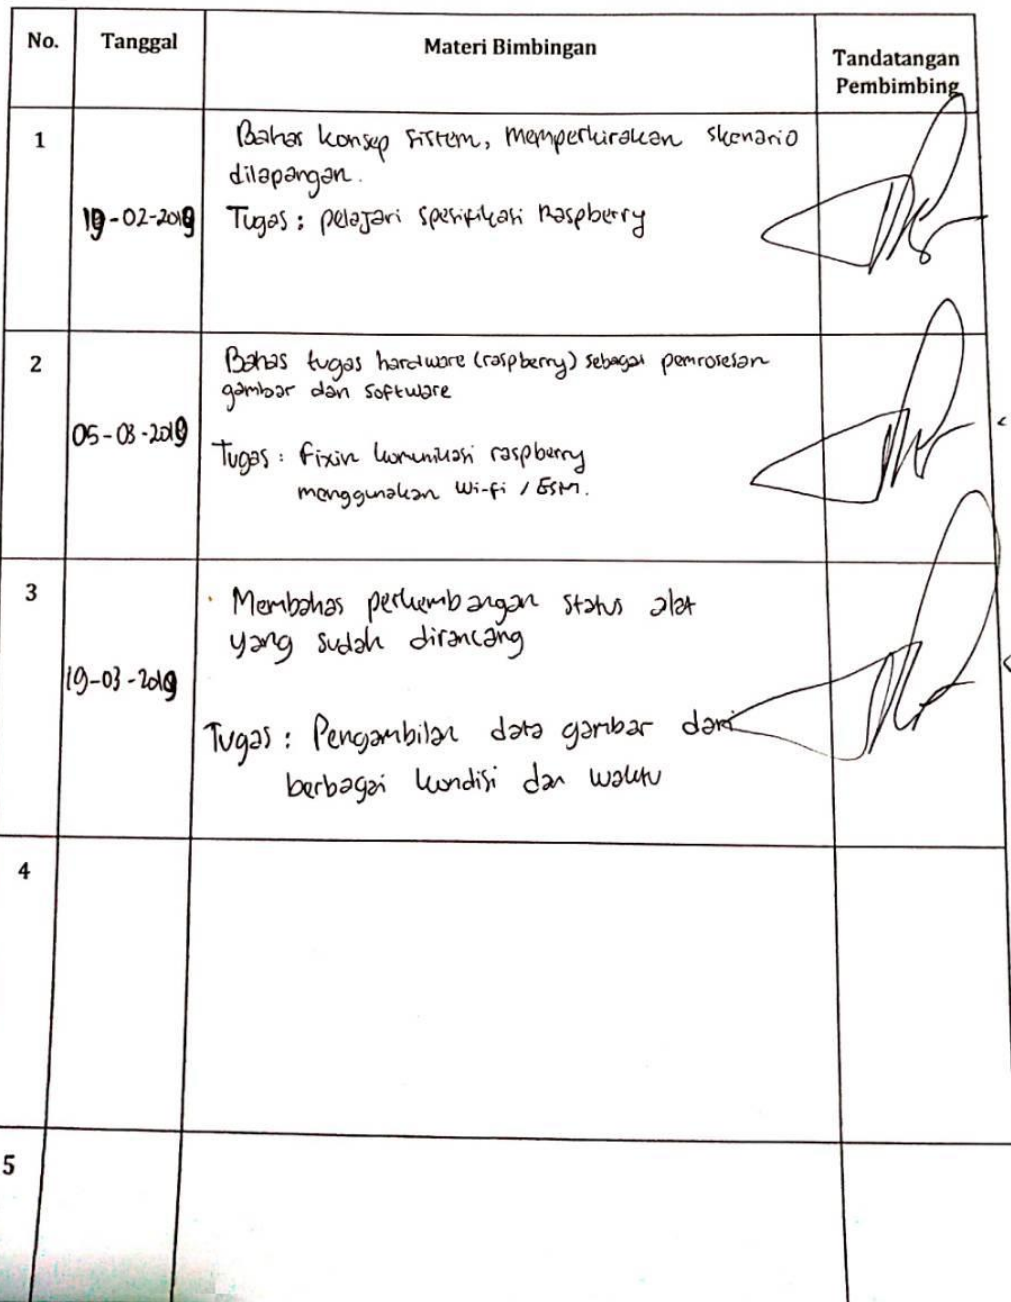 No. Tanggal Materi Bimbingan Tandatangan
Pembimbing
1
Bahas konsep sistem, memperkirakan skenario
dilapangan.
19-02-2019 Tugas : pelajari spesifikasi Raspberry
2
Bahas tugas hardware (raspberry) sebagai pemrosesan
gambar dan software
05-03-2019
Tugas : fixin komunikasi raspberry
menggunakan Wi-fi /
3
Membahas perkembangan status alat
yang sudah dirancang
19-03-2019
Tugas : Pengambilan data gambar dari
berbagai kondisi dan waktu
4
5